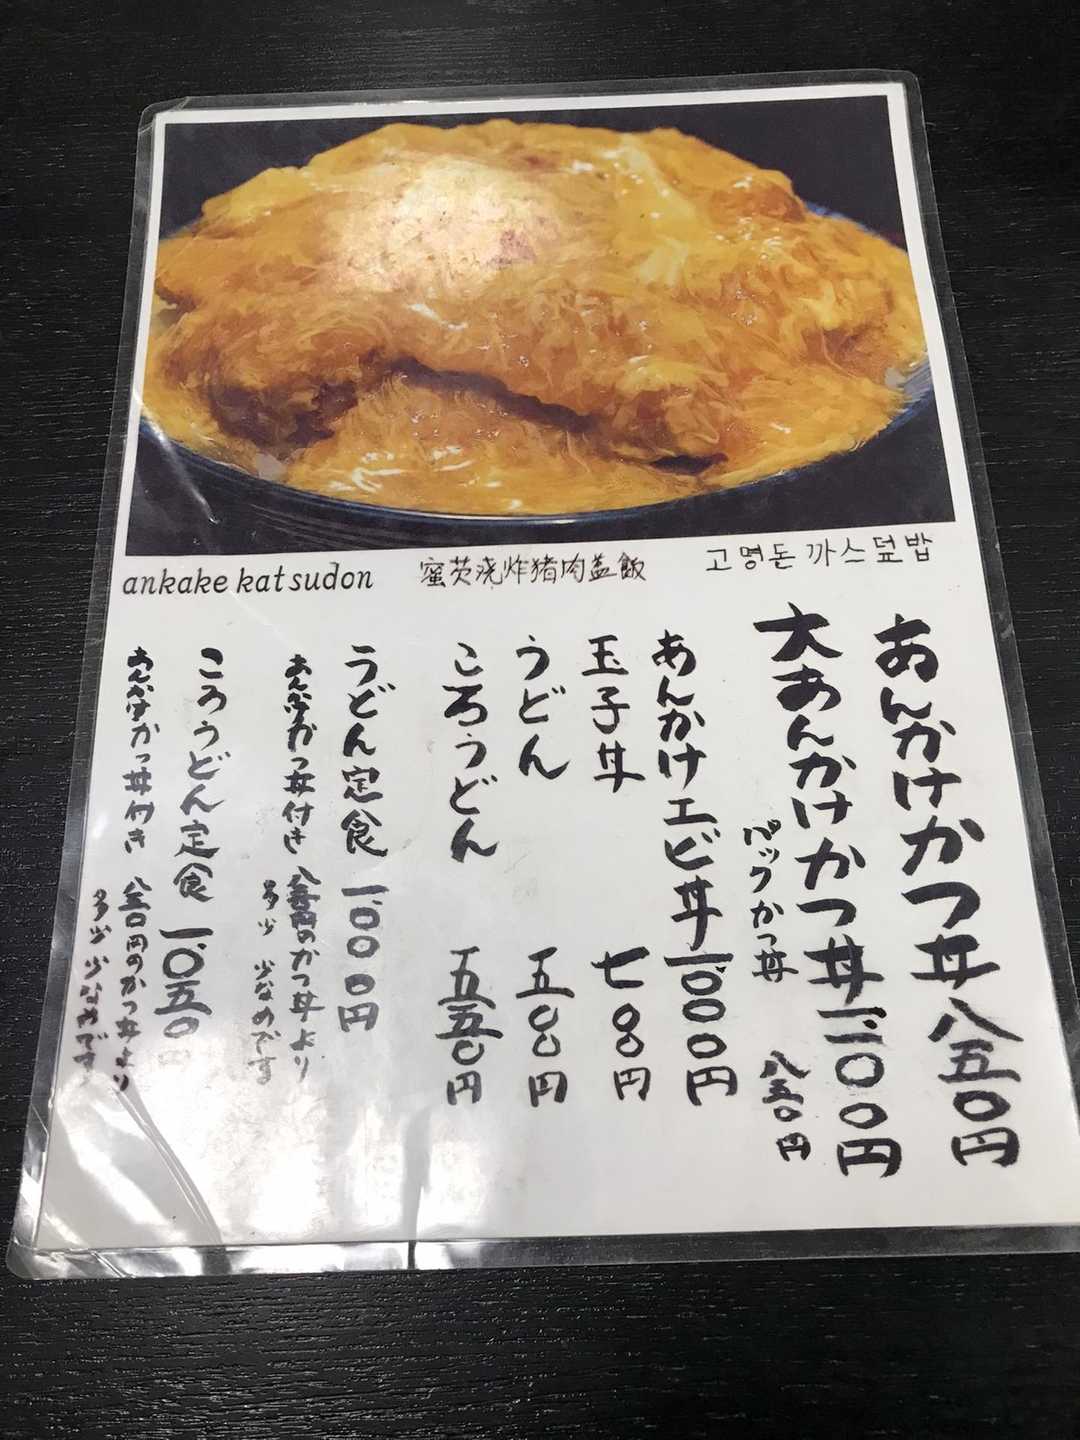 ankake katsudon
蜜芡浇炸猪肉盖飯
고명돈 까스덮밥
あんかけかつ丼 八五〇円
大あんかけかつ丼 一二〇〇円
パックかつ丼 八五〇円
あんかけエビ丼 一〇〇〇円
玉子丼 七〇〇円
うどん 五〇〇円
ころうどん 五五〇円
うどん定食 一、〇〇〇円
あんかけかつ丼付き 八五〇円のかつ丼より
多少 少なめです
ころうどん定食 一、〇五〇円
あんかけかつ丼付き 八五〇円のかつ丼より
多少 少なめです